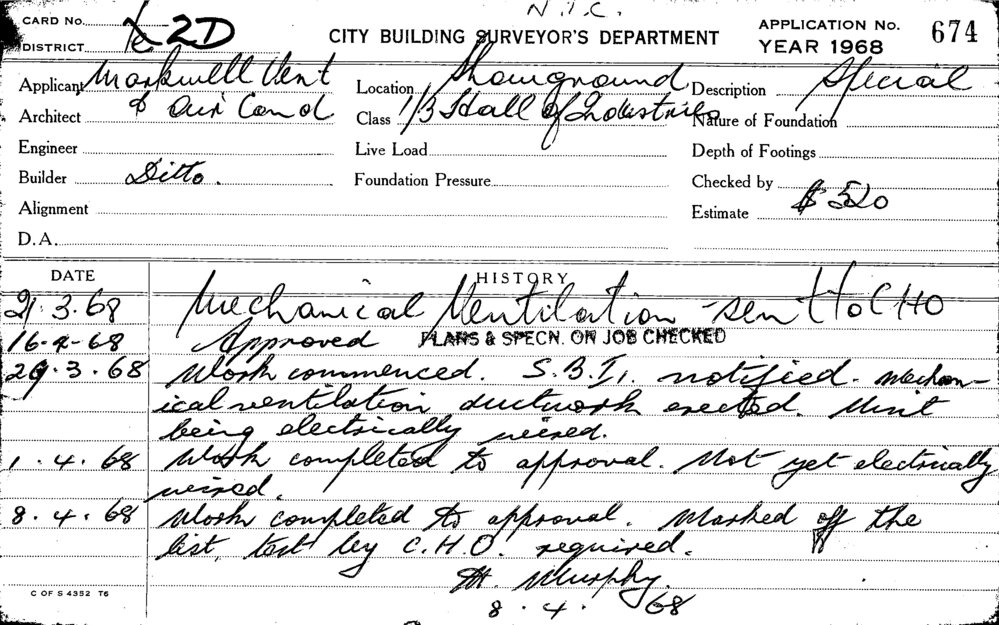 N.I.C.
CARD No. 2D
DISTRICT
CITY BUILDING SURVEYOR'S DEPARTMENT
APPLICATION No. 674
YEAR 1968
Applicant Markwell Vent
Location Showground
Description Special
Architect & Air Cond
Class 1/3 Hall of Industries
Nature of Foundation
Engineer
Live Load
Depth of Footings
Builder Ditto.
Foundation Pressure
Checked by
Alignment
Estimate $520
D.A.
DATE HISTORY
21.3.68 Mechanical Ventilation sent to CHO
16-4-68 Approved PLANS & SPECN. ON JOB CHECKED
29.3.68 Work commenced. S.B.I. notified. Mechan-
ical ventilation ductwork erected. Unit
being electrically wired.
1.4.68 Work completed to approval. Not yet electrically
wired.
8.4.68 Work completed to approval. Marked off the
list, test by C.H.O. required.
Murphy.
8.4.68
C OF S 4352 T6